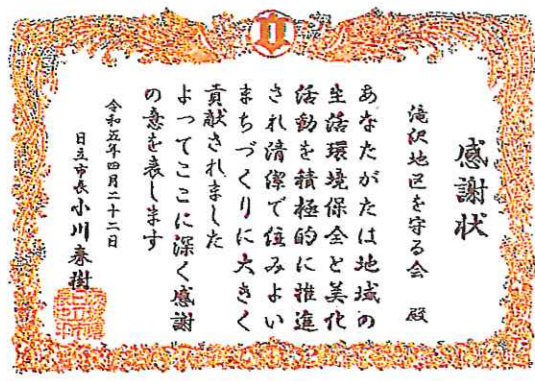 感謝状
滝沢地区を守る会 殿
あなたがたは地域の
生活環境保全と美化
活動を積極的に推進
され清潔で住みよい
まちづくりに大きく
貢献されました
よってここに深く感謝
の意を表します
令和五年四月二十二日
日立市長 小川春樹